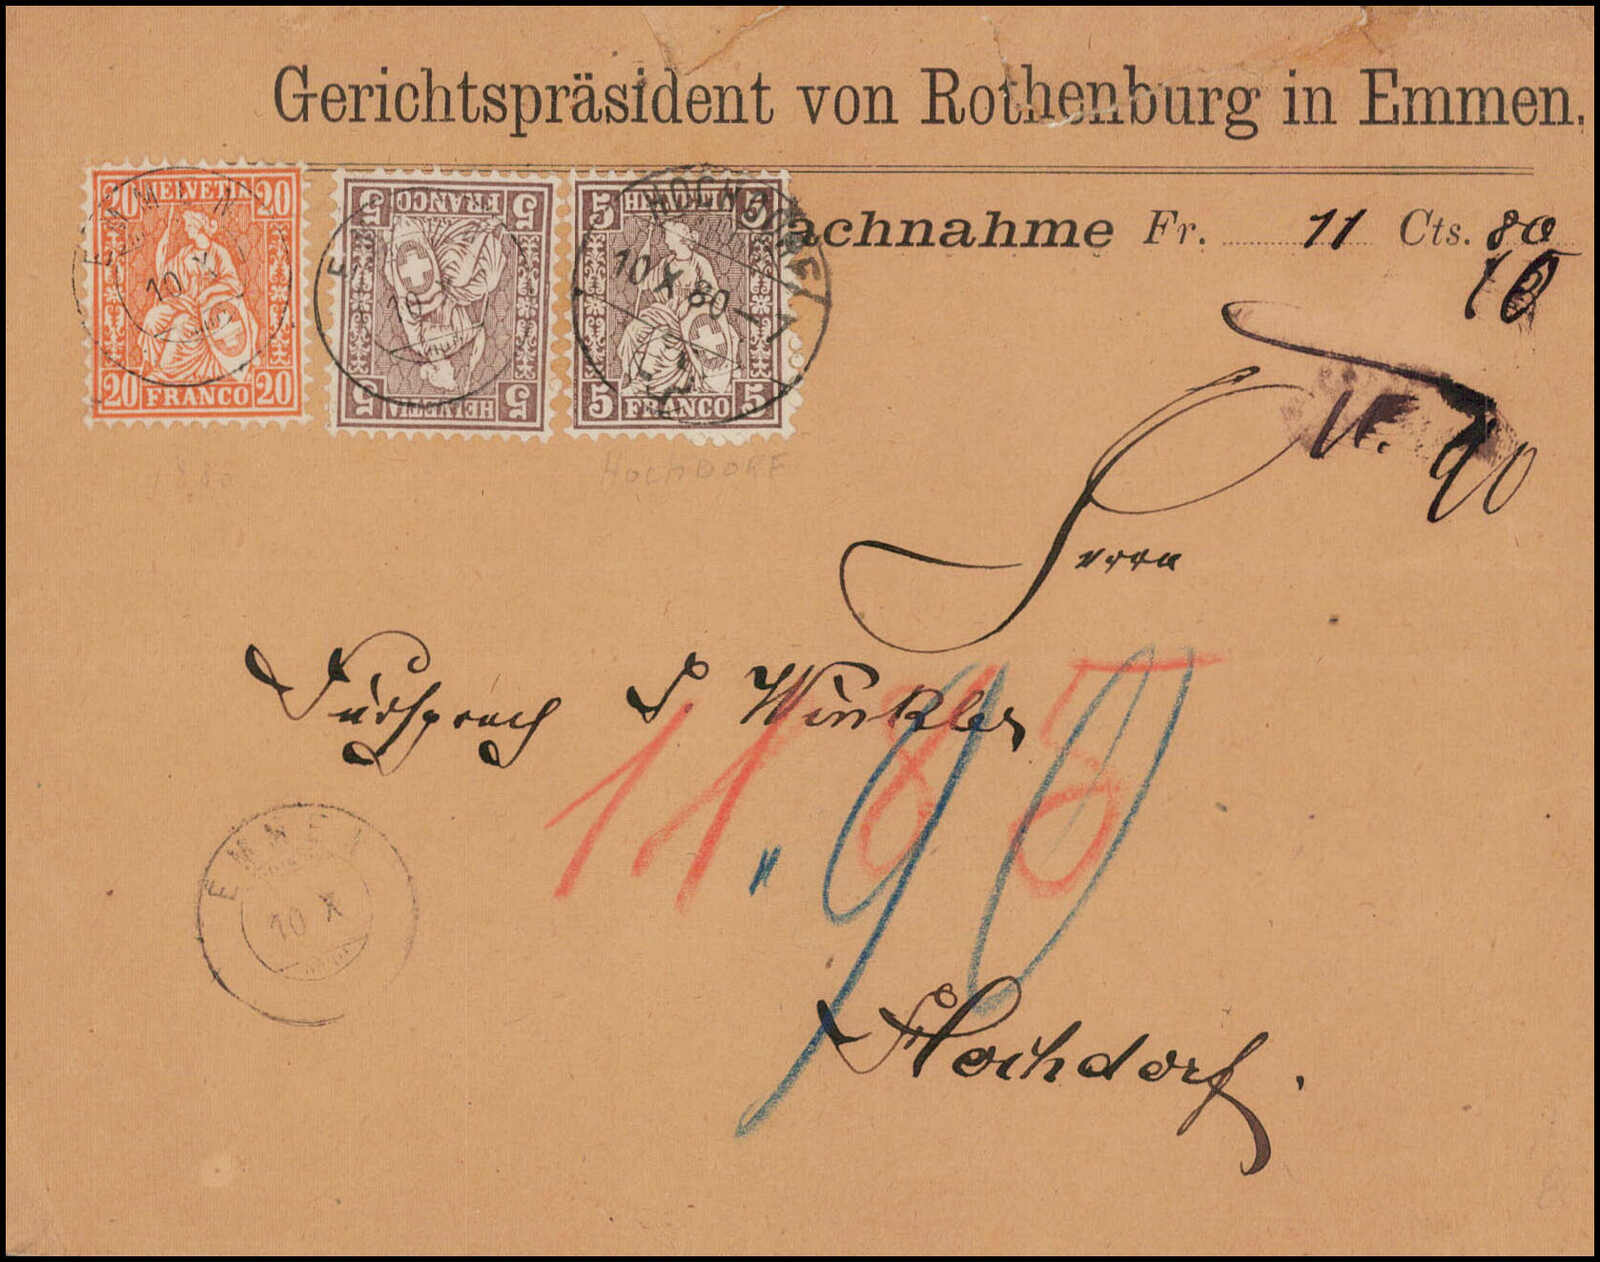 Gerichtspräsident von Rothenburg in Emmen.
20 HELVETIA 20
20 FRANCO 20
EMMEN
10 X
5 HELVETIA 5
5 FRANCO 5
10
5 5
5 FRANCO 5
HOCHDORF
10 X 80
achnahme Fr. 11 Cts. 80
10
11.90
1880
HOCHDORF
Herrn
Fürsprech S. Winkler
11 85
90
EMMEN
10 X
Hochdorf.